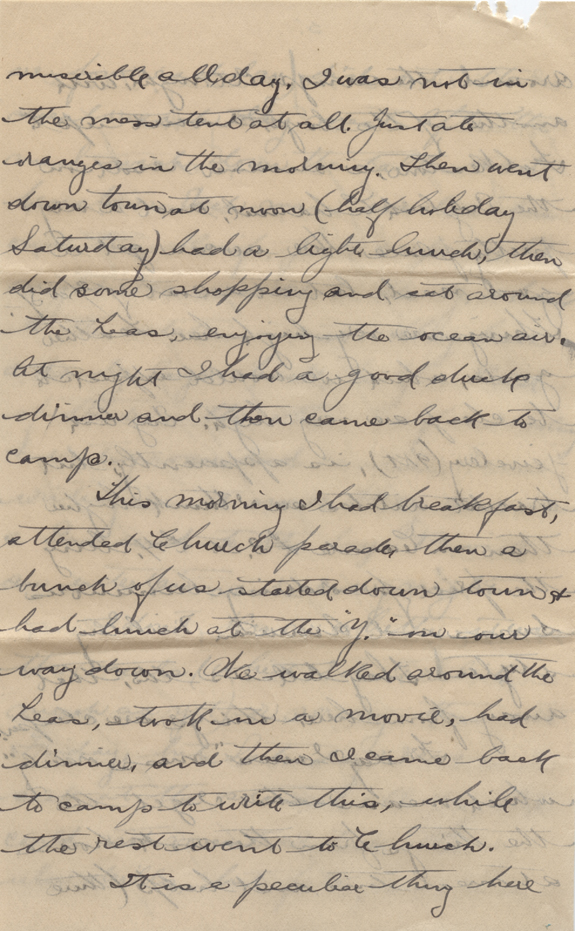 miserible all day. I was not in
the mess tent at all. Just ate
oranges in the morning. Then went
down town at noon (half holiday
Saturday) had a light lunch, then
did some shopping and sat around
the Leas, enjoying the ocean air.
At night I had a good duck
dinner and then came back to
camp.
This morning I had breakfast,
attended Church parade, then a
bunch of us started down town &
had lunch at the "Y." on our
way down. We walked around the
Leas, took in a movie, had
dinner, and then I came back
to camp to write this, while
the rest went to Church.
It is a peculiar thing here